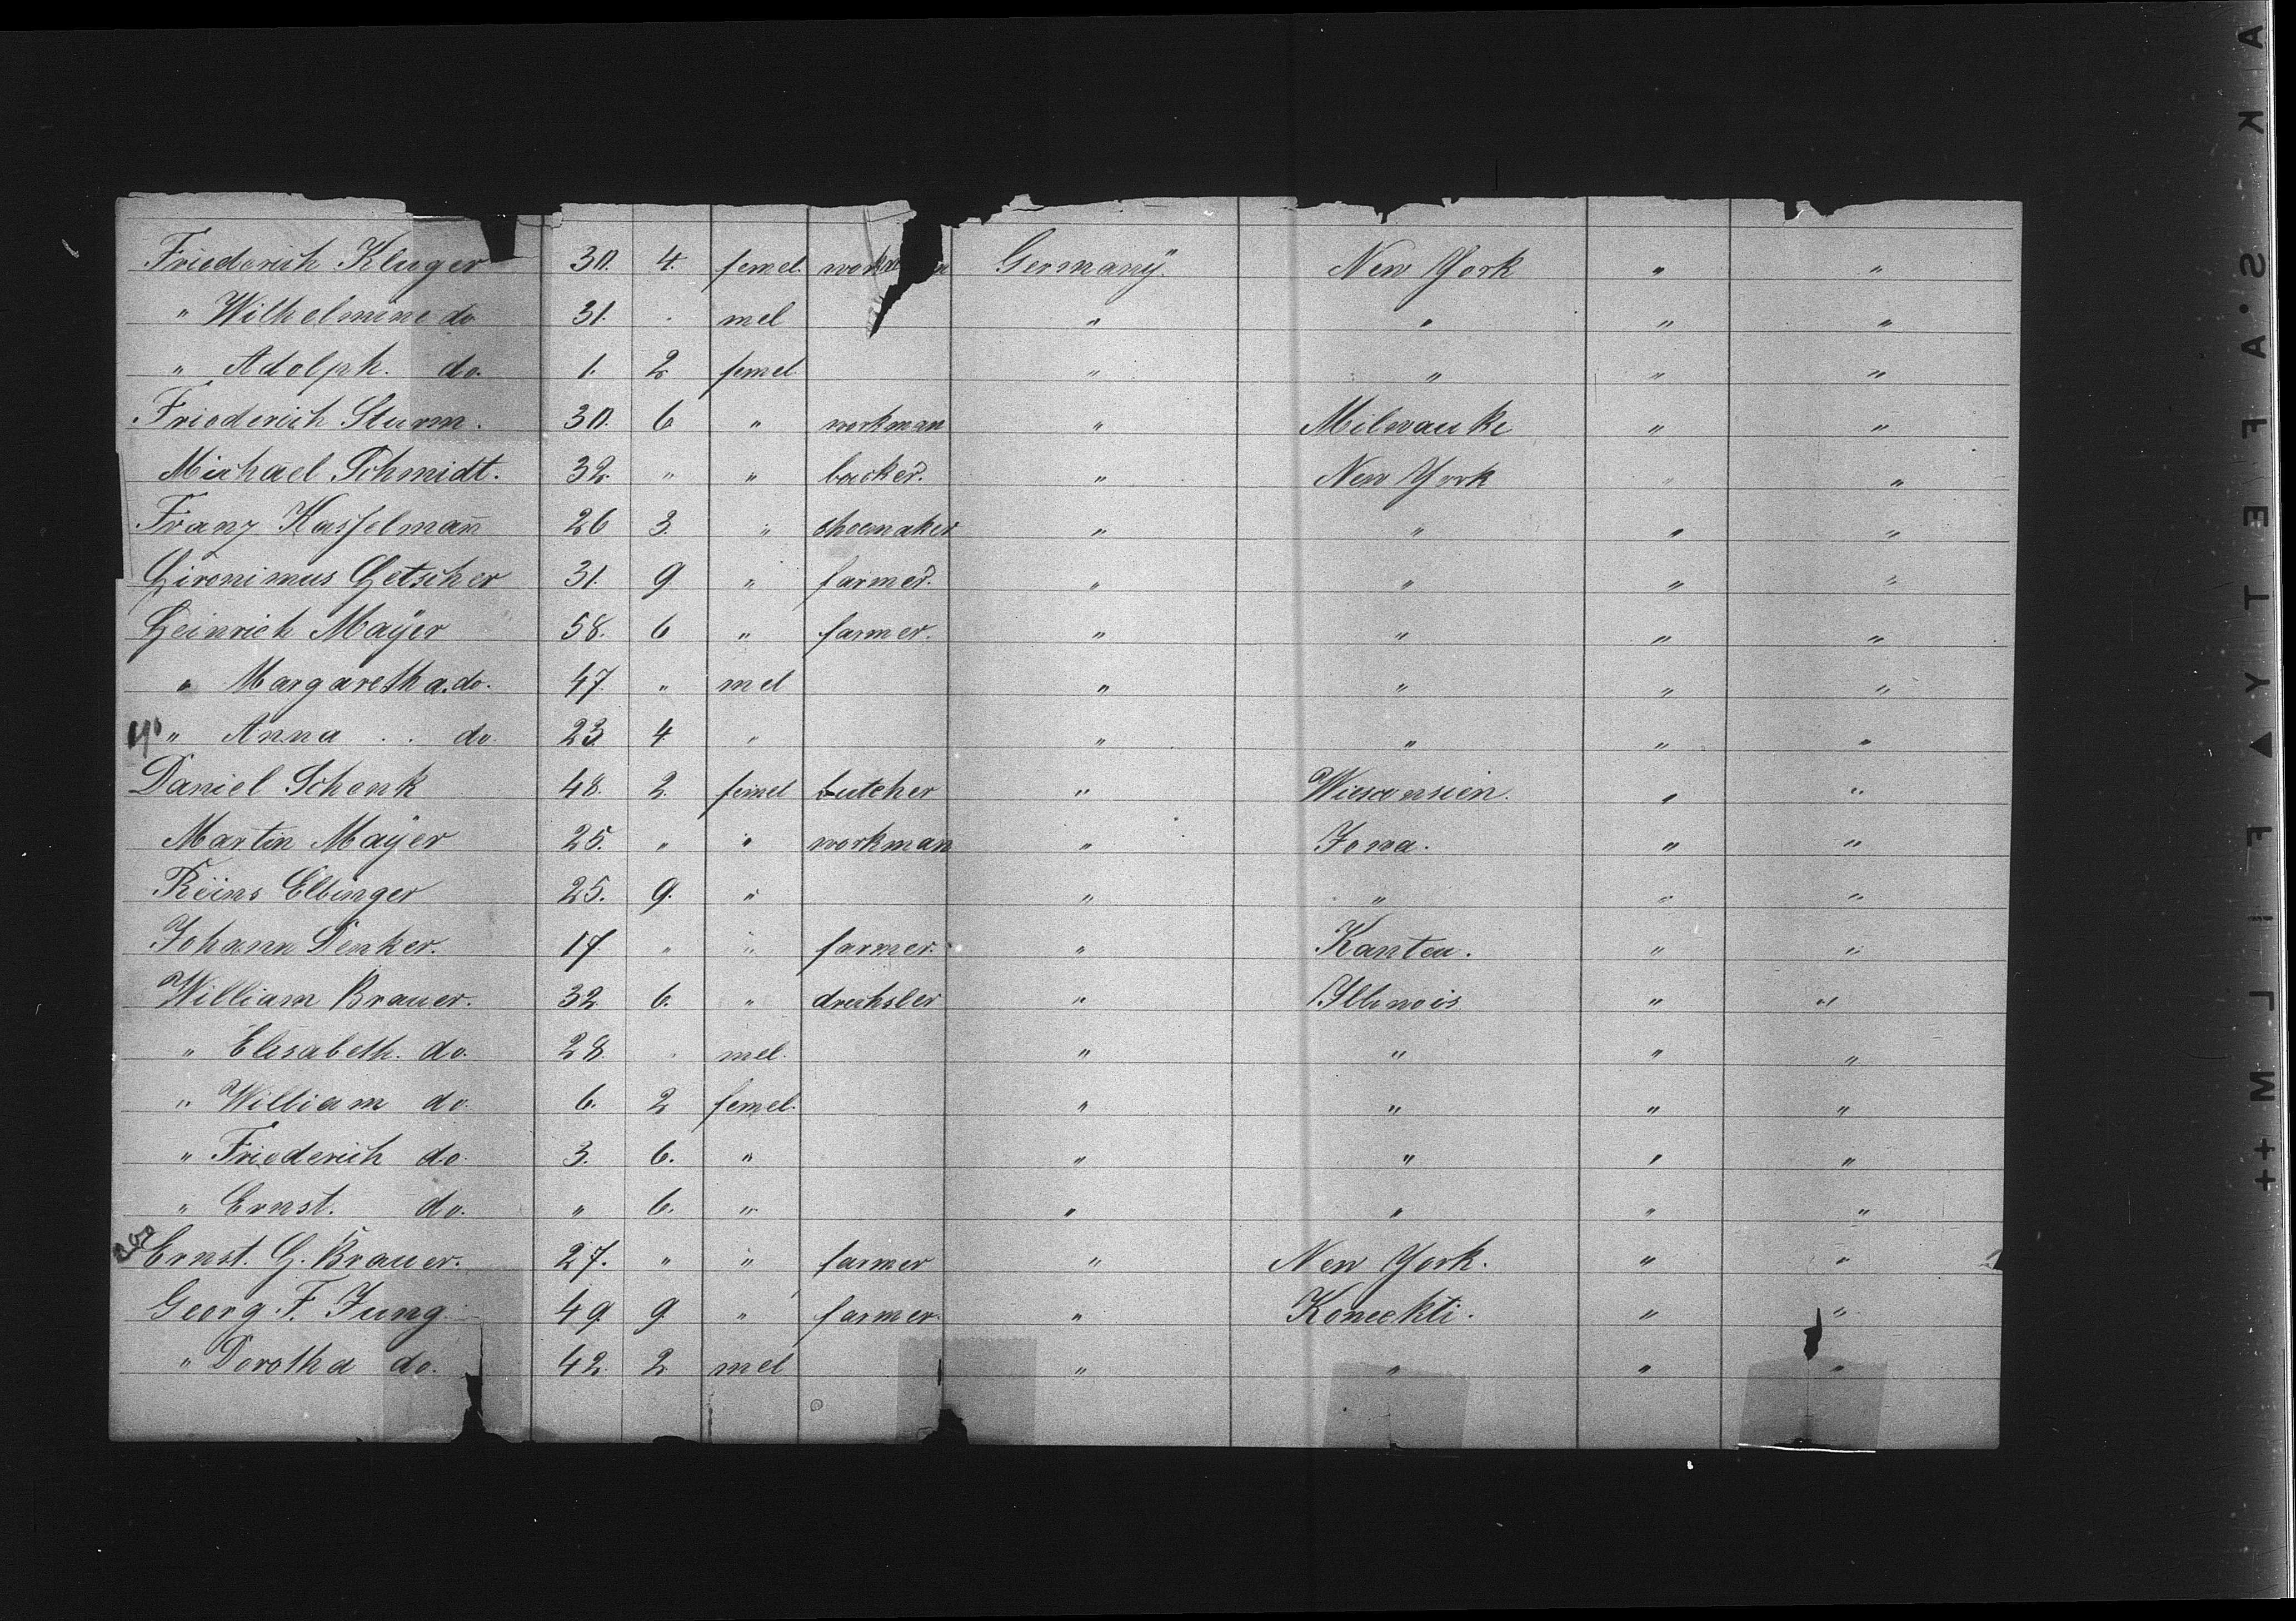 Friederich Kluger 30. 4. femel. workman Germany New York " "
" Wilhelmine do 31. " mel " " " "
" Adolph. do. 1. 2 femel " " " "
Friederich Sturm. 30. 6 " workman " Milwauke " "
Michael Schmidt. 32. " " backer. " New York " "
Franz Hasselmann 26 3. " shoemaker " " " "
Hironimus Hetscher 31. 9 " farmer. " " " "
Heinrich Mayer 58. 6 " farmer. " " " "
" Margaretha. do. 47. " mel " " " "
" Anna . . do. 23. 4 " " " " "
Daniel Schenk 48. 2. femel butcher " Wiesconsien. " "
Martin Mayer 25. " " workman " Iowa. " "
Reins Elbinger 25. 9. " " " " "
Johann Denker. 17. " " farmer. " " "
William Brauer. 32 6. " drechsler " Illinois " "
" Elisabeth. do. 28. " mel. " " " "
" William do. 6. 2 femel. " " " "
" Friederich do. 3. 6. " " " " "
" Ernst. do. " 6. " " " " "
Ernst. H. Brauer. 27. " " farmer " New York. " "
Georg. F. Jung. 49. 9. " farmer. " Koneekti. " "
" Dorotha do. 42. 2. mel " " " "
SAFETY ▲ FILM ++